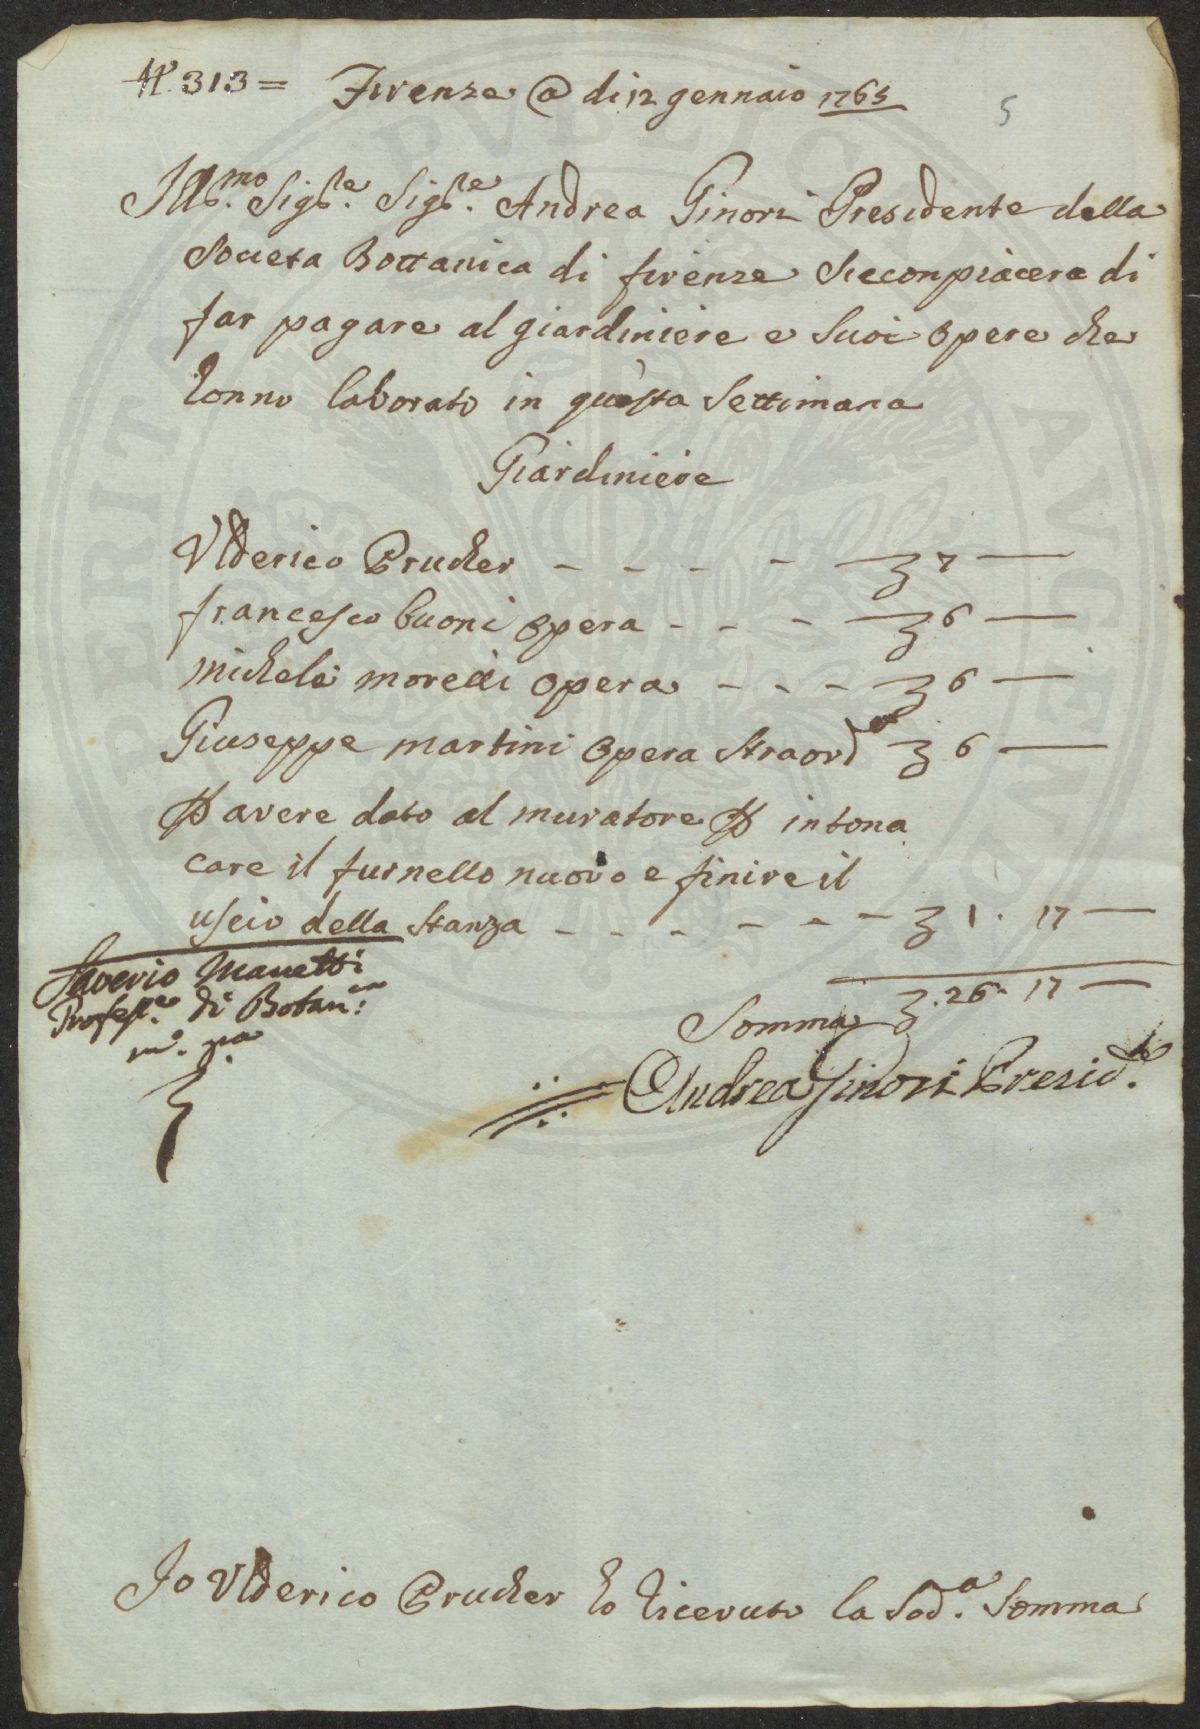 N.º 313 = Firenze @ di 12 gennaio 1765
5
Ill.mo Sig.re Sig.re Andrea Ginori Presidente della
Societa Bottanica di firenze Sieconpiacera di
far pagare al giardiniere e Suoi opere che
honno laborato in questa Settimana
Giardiniere
Vlderico Prucher - - - - 7 —
francesco buoni opera - - - 6 —
michele morelli opera - - - 6 —
Giuseppe martini opera Straord 6 —
P avere dato al muratore P intona
care il furnello nuovo e finire il
uscio della Stanza - - - - - - 1 . 17 —
Saverio Manetti
Profess.e di Botan.ca
m.o p.a
Somma 26 . 17 —
Andrea Ginori Presid.te
Io Vlderico Prucher ho riceuuto la Sod.a Somma